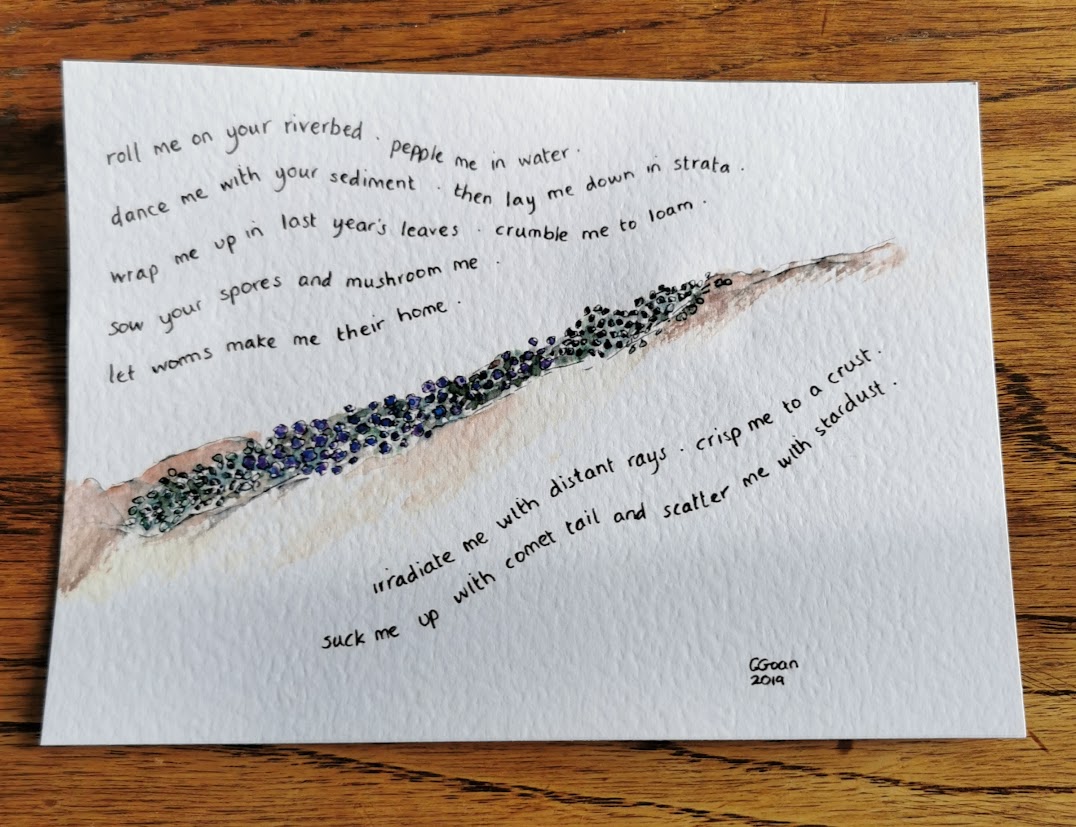 roll me on your riverbed . pepple me in water .
dance me with your sediment . then lay me down in strata .
wrap me up in last year's leaves . crumble me to loam .
sow your spores and mushroom me .
let worms make me their home .
irradiate me with distant rays . crisp me to a crust .
suck me up with comet tail and scatter me with stardust .
CGoan
2019